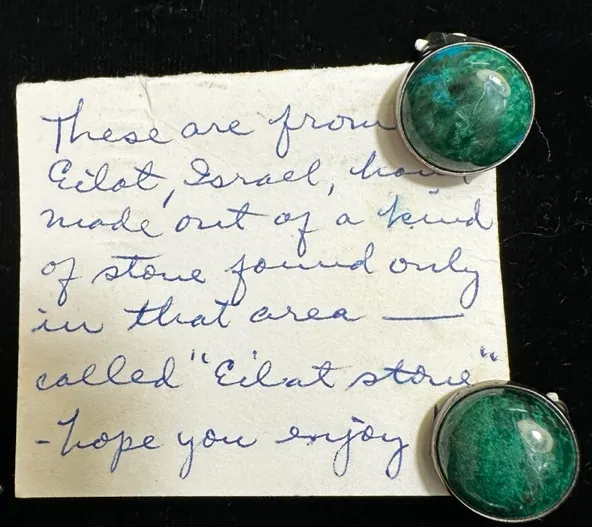 These are from
Eilat, Israel,
made out of a kind
of stone found only
in that area —
called "Eilat stone"
-hope you enjoy